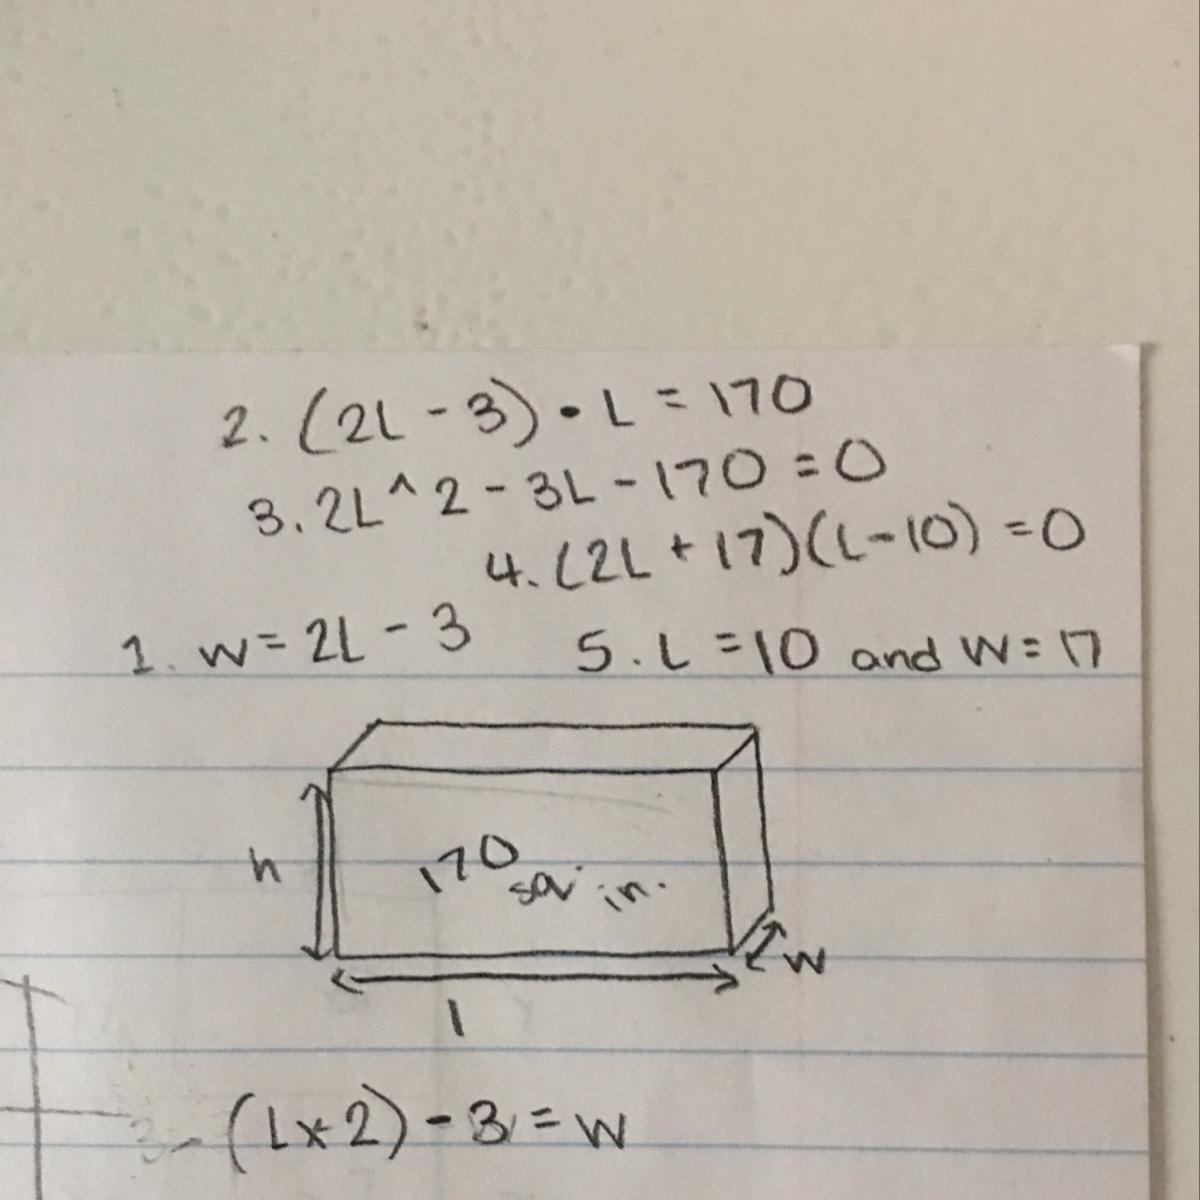 2. (2L - 3) • L = 170
3. 2L^2 - 3L - 170 = 0
4. (2L + 17)(L - 10) = 0
1. W = 2L - 3
5. L = 10 and W = 17
h
170
sq. in.
w
l
(L x 2) - 3 = W